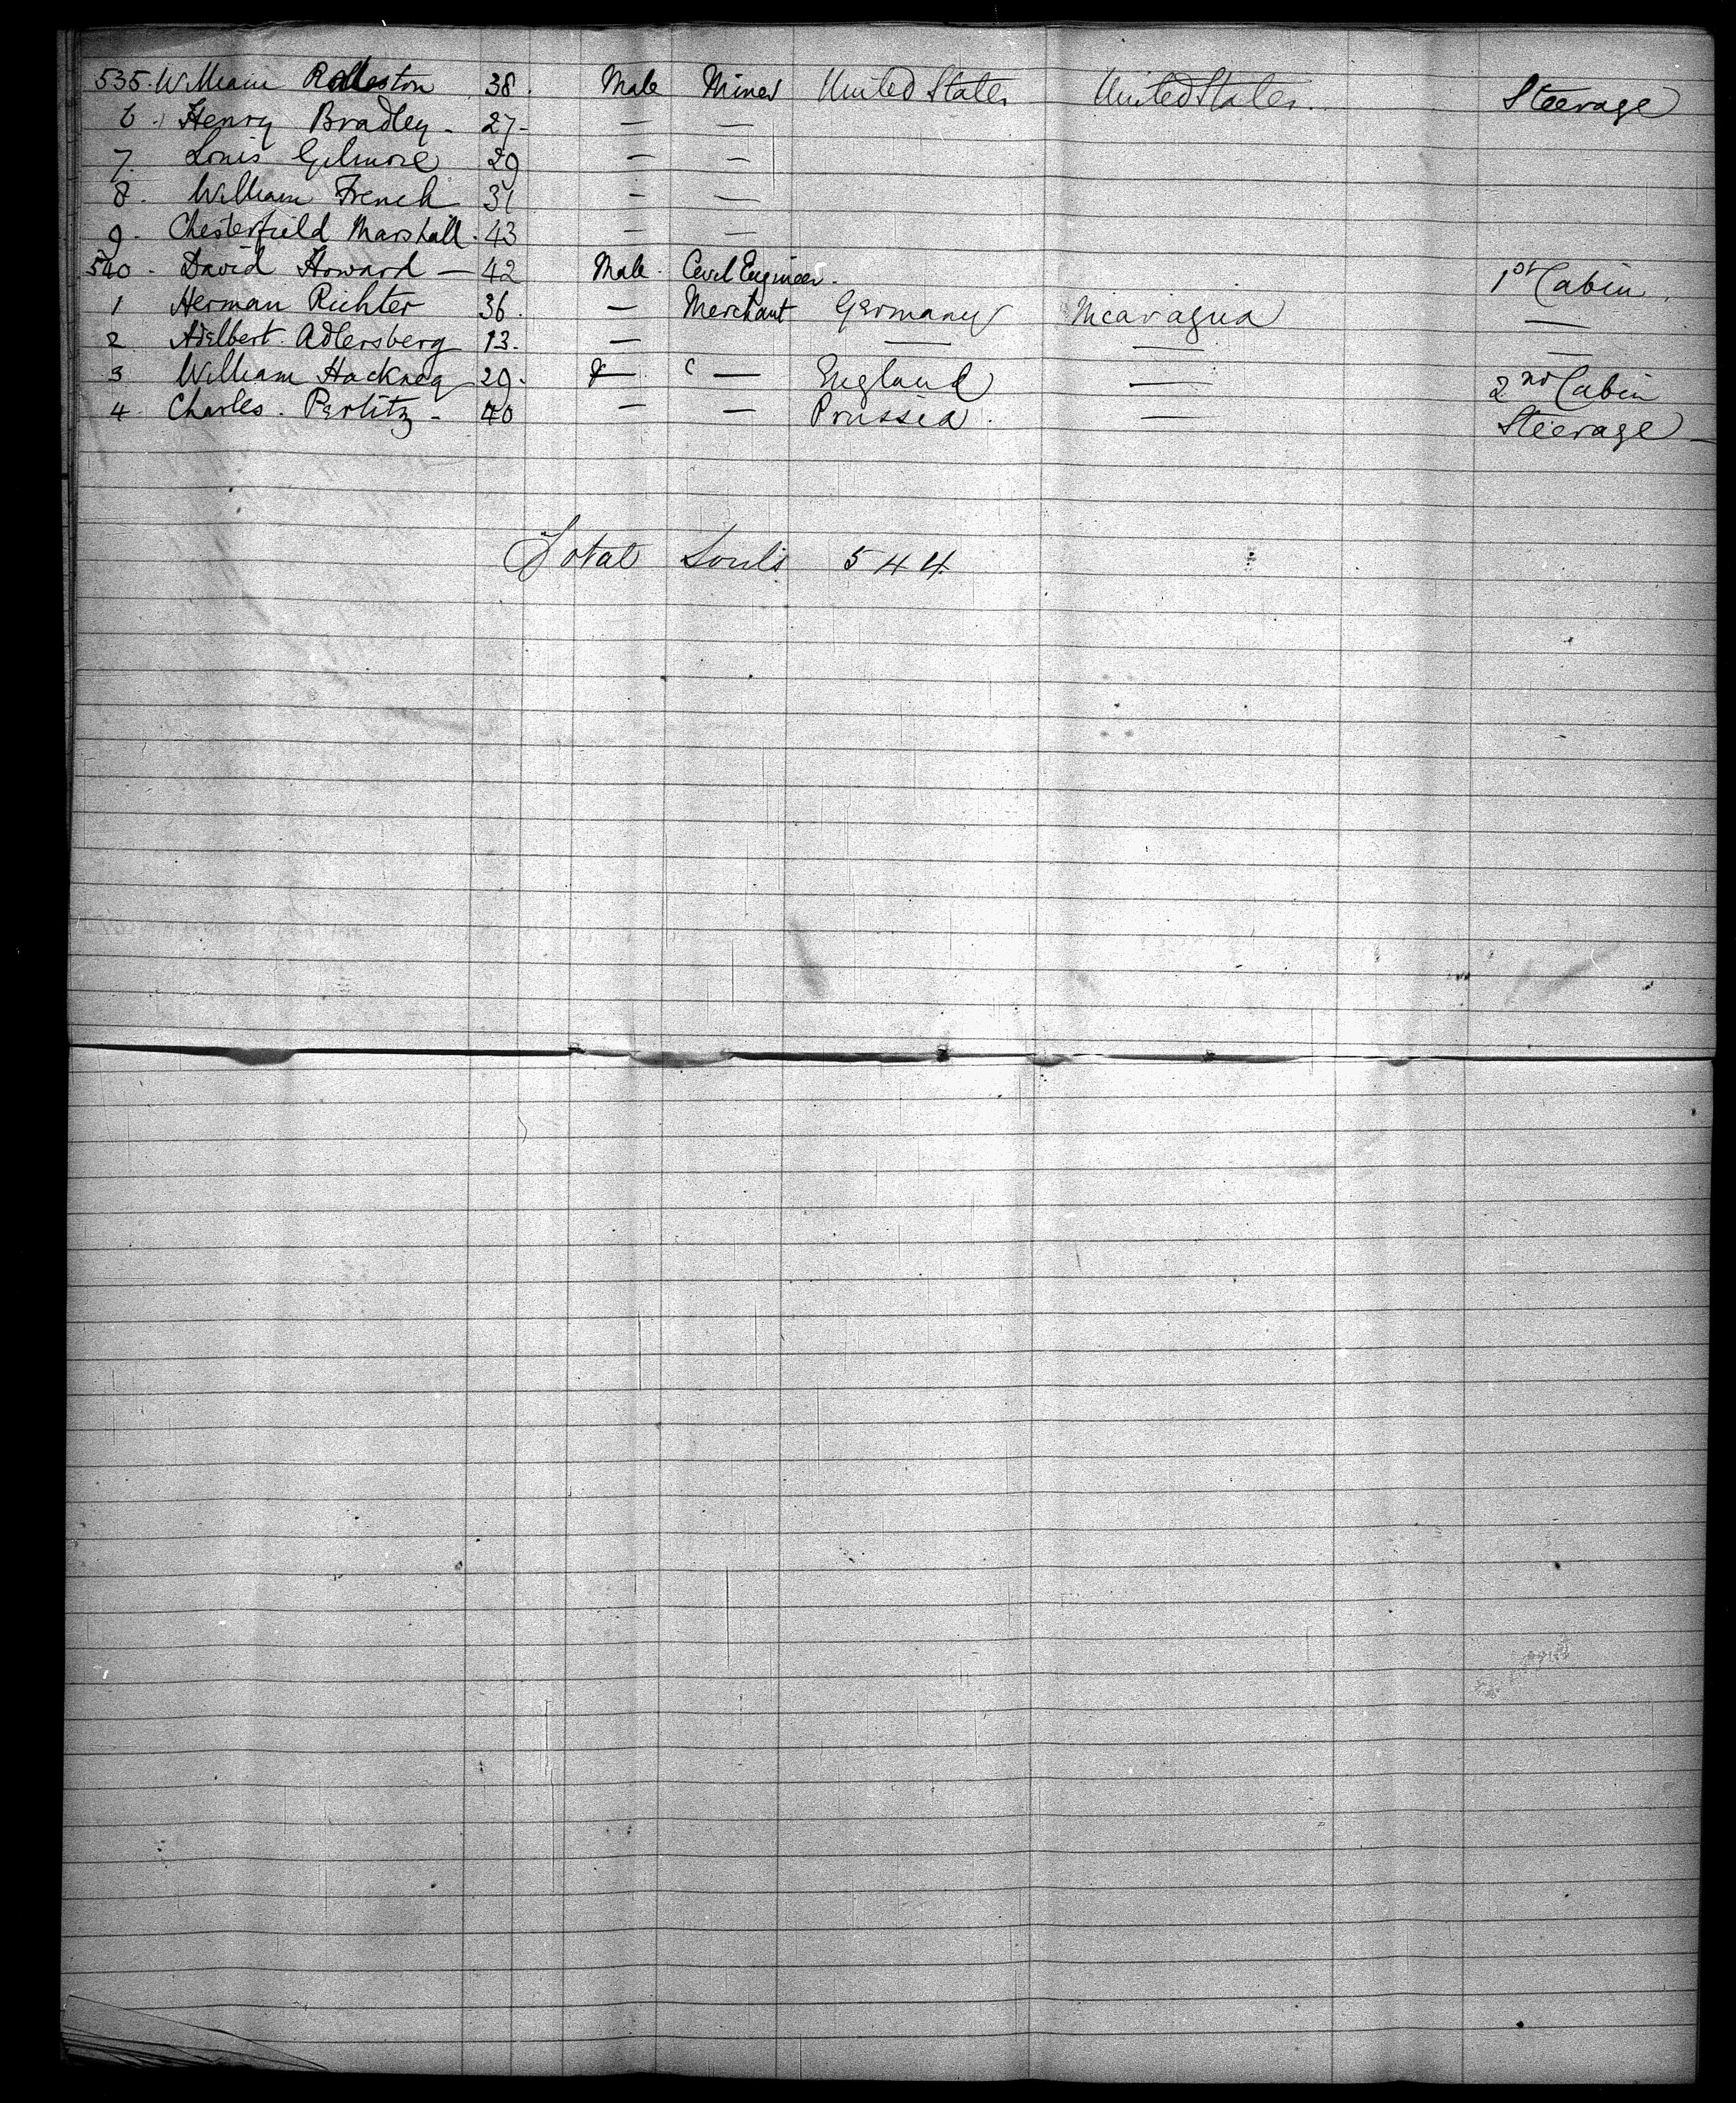 535. William Rolleston 38. Male Miner United States United States. Steerage
6. Henry Bradley - 27- — —
7. Louis Gilmore 29 — —
8. William French 31 - —
9. Chesterfield Marshall. 43 — —
540. David Howard — 42 Male. Civil Engineer. 1st Cabin.
1 Herman Richter 36. — Merchant Germany Nicaragua —
2 Adelbert Adlersberg 13. — — — —
3 William 29. — — England — 2nd Cabin
4. Charles. Perlitz - 40 — — Prussia. — Steerage —
Total Souls 544